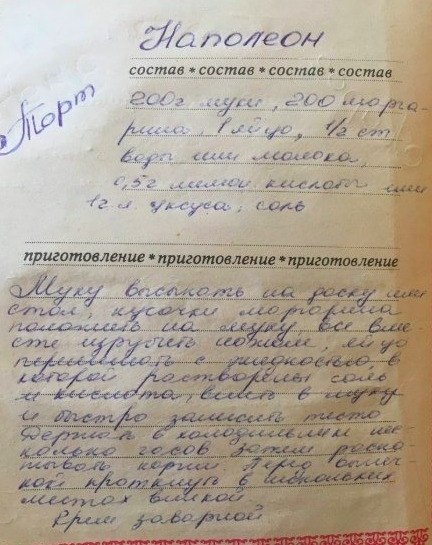 Наполеон
состав * состав * состав * состав
Торт
200г муки, 200 марга-
рина, 1 яйцо, 1/2 ст
воды или молока,
0,5г лимон кислоты или
1г л. уксуса, соль
приготовление * приготовление * приготовление
Муку высыпать на доску или
стол, кусочки маргарина
положить на муку, все вме-
сте изрубить ножом, яйцо
перемешать с жидкостью, в
которой растворены соль
и кислота, влить в муку
и быстро замесить тесто
Держать в холодильнике нес-
колько часов. Затем раска-
тывать коржи. Перед выпеч-
кой проткнуть в нескольких
местах вилкой.
Крем заварной